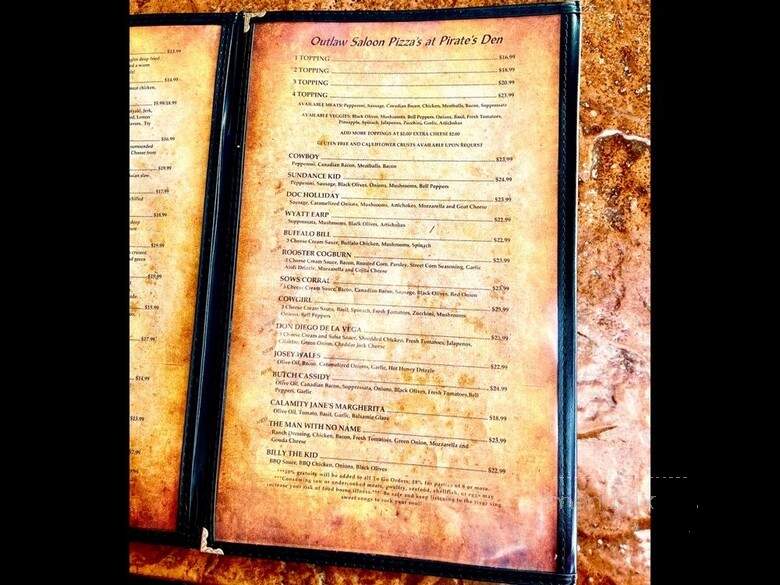 Outlaw Saloon Pizza's at Pirate's Den
1 TOPPING $16.99
2 TOPPING $18.99
3 TOPPING $20.99
4 TOPPING $23.99
AVAILABLE MEATS: Pepperoni, Sausage, Canadian Bacon, Chicken, Meatballs, Bacon, Suppressata
AVAILABLE VEGGIES: Black Olives, Mushrooms, Bell Peppers, Onions, Basil, Fresh Tomatoes,
Pineapple, Spinach, Jalapenos, Zucchini, Garlic, Artichokes
ADD MORE TOPPINGS AT $2.00/ EXTRA CHEESE $2.00
GLUTEN FREE AND CAULIFLOWER CRUSTS AVAILABLE UPON REQUEST
COWBOY $23.99
Pepperoni, Canadian Bacon, Meatballs, Bacon
SUNDANCE KID $24.99
Pepperoni, Sausage, Black Olives, Onions, Mushrooms, Bell Peppers
DOC HOLLIDAY $23.99
Sausage, Caramelized Onions, Mushrooms, Artichokes, Mozzarella and Goat Cheese
WYATT EARP $22.99
Suppressata, Mushrooms, Black Olives, Artichokes
BUFFALO BILL $22.99
3 Cheese Cream Sauce, Buffalo Chicken, Mushrooms, Spinach
ROOSTER COGBURN $23.99
3 Cheese Cream Sauce, Bacon, Roasted Corn, Parsley, Street Corn Seasoning, Garlic
Aioli Drizzle, Mozzarella and Cojita Cheese
SOWS CORRAL $23.99
3 Cheese Cream Sauce, Bacon, Canadian Bacon, Sausage, Black Olives, Red Onion
COWGIRL $23.99
3 Cheese Cream Sauce, Basil, Spinach, Fresh Tomatoes, Zucchini, Mushrooms
Onions, Bell Peppers
DON DIEGO DE LA VEGA $23.99
3 Cheese Cream and Salsa Sauce, Shredded Chicken, Fresh Tomatoes, Jalapenos,
Cilantro, Green Onion, Cheddar Jack Cheese
JOSEY WALES $22.99
Olive Oil, Bacon, Caramelized Onions, Garlic, Hot Honey Drizzle
BUTCH CASSIDY $24.99
Olive Oil, Canadian Bacon, Suppressata, Onions, Black Olives, Fresh Tomatoes, Bell
Peppers, Garlic
CALAMITY JANE'S MARGHERITA $18.99
Olive Oil, Tomato, Basil, Garlic, Balsamic Glaze
THE MAN WITH NO NAME $23.99
Ranch Dressing, Chicken, Bacon, Fresh Tomatoes, Green Onion, Mozzarella and
Gouda Cheese
BILLY THE KID $22.99
BBQ Sauce, BBQ Chicken, Onions, Black Olives
gratuity will be added to all To Go Orders; 18% for parties of 8 or more.
***Consuming raw or undercooked meats, poultry, seafood, shellfish, or eggs may
increase your risk of food borne illness.*** Be safe and keep listening to the
sweet songs to rock your soul!